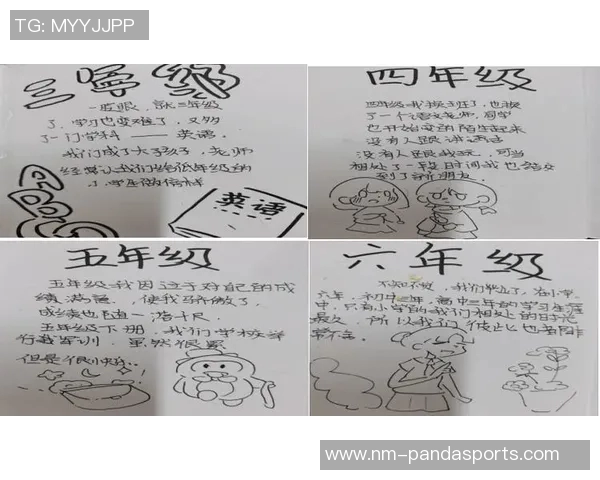 TG: MYYJJPP
三年级
一眨眼,就三年级
了,学习也变难了,又多
了一门学科——英语。
我们成了大孩子,老师
经常让我们给低年级的
学生做榜样
ABC
英语
四年级
四年级我换班了,也换
了一个语文老师,同学
也开始变的陌生起来
没有人跟我讲话
没有人跟我玩,可当
相处了一段时间我也结交
到了新朋友
五年级
五年级我因过于对自己的成
绩满意,使我骄傲了,
成绩也随一落千尺
五年级下册,我们学校举
行军训,虽然很累
但是很快乐
六年级
不知不觉,我们毕业了,在小学
六年,初中三年,高中三年的学习生涯
中,只有小学的我们相处的时光
最久,所以我们彼此也非常
www.nm-pandasports.com